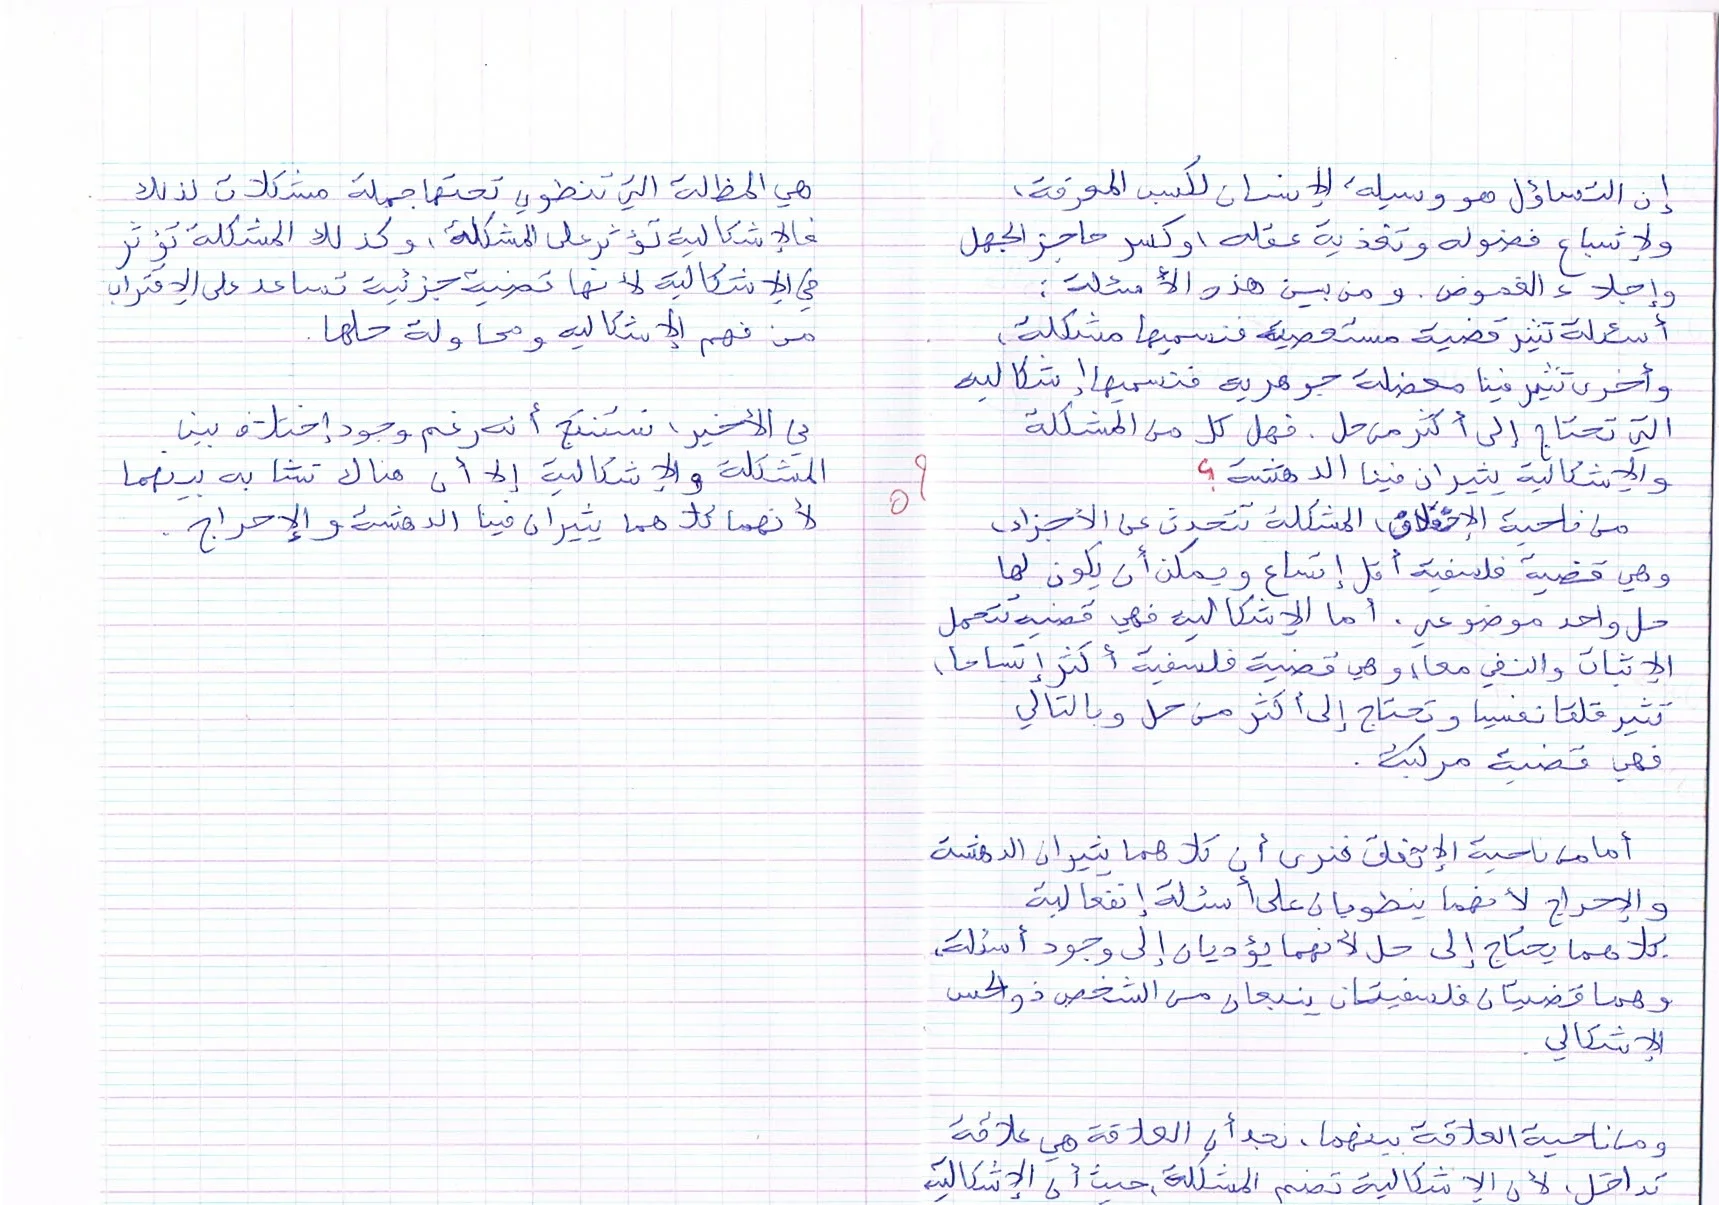 إن التساؤل هو وسيلة الإنسان لكسب المعرفة،
ولإشباع فضوله وتغذية عقله، وكسر حاجز الجهل
وإجلاء الغموض. ومن بين هذه الأسئلة:
أسئلة تثير قضية مستعصية فنسميها مشكلة،
وأخرى تثير فينا معضلة جوهرية فنسميها إشكالية
التي تحتاج إلى أكثر من حل. فهل كل من المشكلة
والإشكالية يثيران فينا الدهشة؟
من ناحية الإختلاف، المشكلة تتحدث عن الأجزاء،
وهي قضية فلسفية أقل إتساع ويمكن أن يكون لها
حل واحد موضوعي. أما الإشكالية فهي قضية تتحمل
الإثبات والنفي معا، وهي قضية فلسفية أكثر إتساعا،
تثير قلقا نفسيا وتحتاج إلى أكثر من حل وبالتالي
فهي قضية مركبة.
أما من ناحية الإتفاق فنرى أن كلاهما يثيران الدهشة
والإحراج لأنهما ينطويان على أسئلة إنفعالية
كلاهما يحتاج إلى حل لأنهما يؤديان إلى وجود أسئلة،
وهما قضيتان فلسفيتان ينبعان من الشخص ذو الحس
الإشكالي.
ومن ناحية العلاقة بينهما، نجد أن العلاقة هي علاقة
تداخل، لأن الإشكالية تضم المشكلة، حيث أن الإشكالية
هي المظلة التي تنطوي تحتها جملة مشكلات لذلك
فالإشكالية تؤثر على المشكلة، وكذلك المشكلة تؤثر
في الإشكالية لأنها قضية جزئية تساعد على الإقتراب
من فهم الإشكالية ومحاولة حلها.
في الأخير، نستنتج أنه رغم وجود إختلاف بين
المشكلة والإشكالية إلا أن هناك تشابه بينهما
لأنهما كلاهما يثيران فينا الدهشة والإحراج.